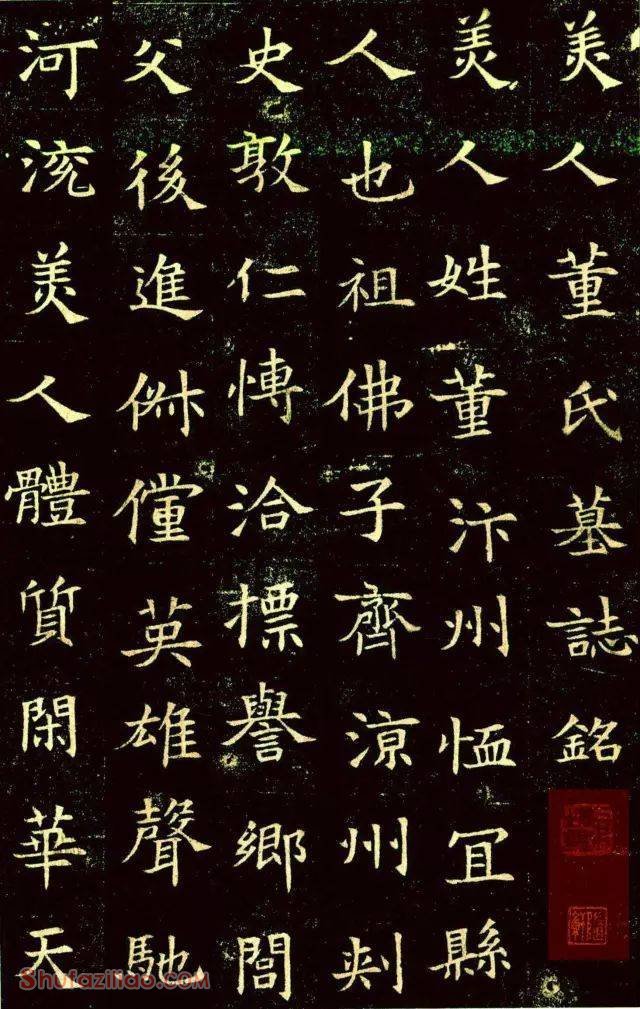 美人董氏墓誌銘
美人姓董汴州恤冝縣
人也祖佛子齊涼州刾
史敦仁愽洽摽譽鄉閭
父後進俶儻英雄聲馳
河渷美人體質閑華天
Shufaziliao.com